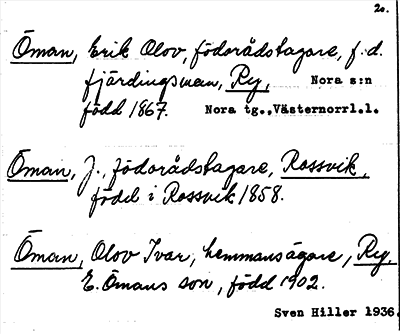 20.
Öman, Erik Olov, födorådstagare, f.d.
fjärdingsman, Ry, Nora s:n
född 1867. Nora tg., Västernorrl.l.
Öman, J., födorådstagare, Rossvik,
född i Rossvik 1858.
Öman, Olov Ivar, hemmansägare, Ry,
E. Ömans son, född 1902.
Sven Hiller 1936.